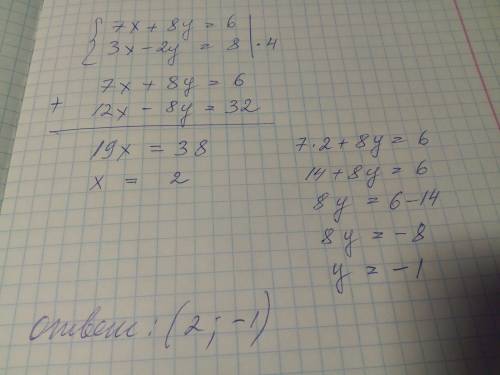 { 7x + 8y = 6
3x - 2y = 8 | · 4
7x + 8y = 6
+ 12x - 8y = 32
19x = 38
x = 2
7 · 2 + 8y = 6
14 + 8y = 6
8y = 6 - 14
8y = -8
y = -1
ответ: (2; -1)